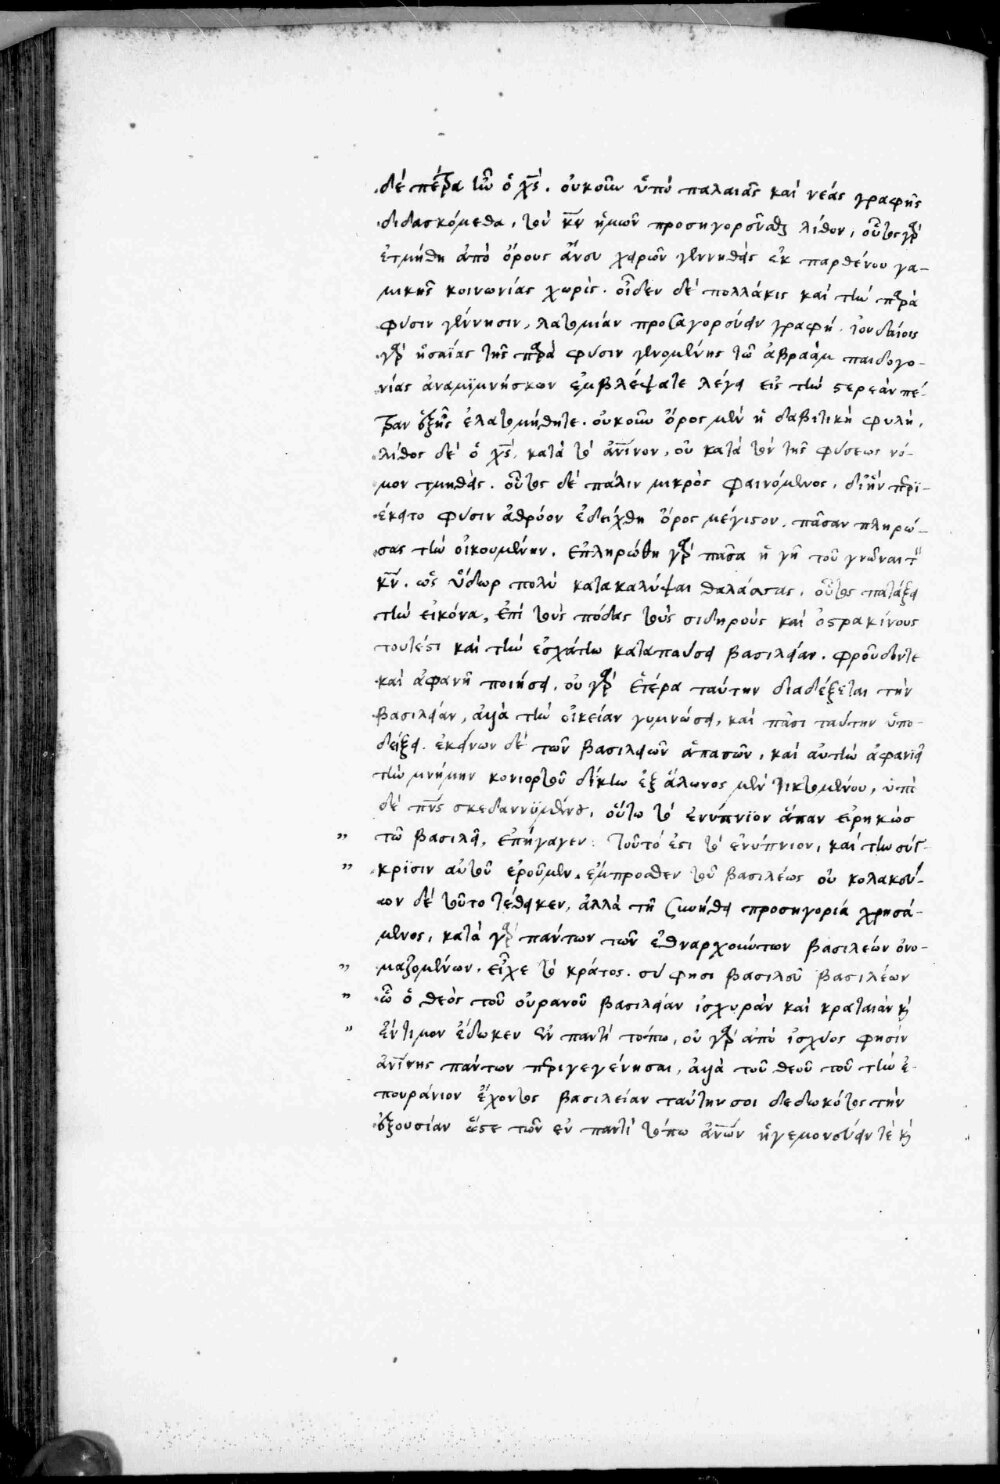 δὲ πέτρα ἦν ὁ χς. οὐκοῦν ὑπὸ παλαιᾶς καὶ νέας γραφῆς
διδασκόμεθα, τὸν κν ἡμῶν προσηγορεῦσθαι λίθον, οὗτος γὰρ
ἐτμήθη ἀπὸ ὄρους ἄνευ χειρῶν γεννηθεὶς ἐκ παρθένου γα-
μικῆς κοινωνίας χωρίς. οἶδεν δὲ πολλάκις καὶ τὴν παρὰ
φύσιν γέννησιν, λατομίαν προσαγορεύειν γραφή. ἰουδαίους
γὰρ ἡσαΐας τῆς παρὰ φύσιν γενομένης τῶ ἀβραὰμ παιδογο-
νίας ἀναμιμνήσκων ἐμβλέψατε λέγει εἰς τὴν στερεὰν πέ-
τραν ἐξ ἧς ἐλατομήθητε. οὐκοῦν ὄρος μὲν ἡ δαβιτικὴ φυλὴ,
λίθος δὲ ὁ χς, κατὰ τὸ ἀνινον, οὐ κατὰ τὸν τῆς φύσεως νό-
μον τμηθείς. οὗτος δὲ πάλιν μικρὸς φαινόμενος, δι ἣν περι-
έκειτο φύσιν ἀθρόον ἐδείχθη ὄρος μέγιστον, πᾶσαν πληρώ-
σας τὴν οἰκουμένην. ἐπληρώθη γὰρ πᾶσα ἡ γῆ τοῦ γνῶναι τὸν
κν. ὡς ὕδωρ πολὺ κατακαλύψαι θαλάσσας, οὗτος πατάξει
τὴν εἰκόνα, ἐπὶ τοὺς πόδας τοὺς σιδηροὺς καὶ ὀστρακίνους
τουτέστι καὶ τὴν ἐσχάτην καταπαύσει βασιλείαν. φρούδην τε
καὶ ἀφανῆ ποιήσει, οὐ γὰρ ἑτέρα ταύτην διαδέξεται τὴν
βασιλείαν, ἀλλὰ τὴν οἰκείαν γυμνώσει, καὶ πᾶσι ταύτην ὑπο-
δείξει. ἐκείνων δὲ τῶν βασιλειῶν ἁπασῶν, καὶ αὐτὴν ἀφανιεῖ
τὴν μνήμην κονιορτοῦ δίκην ἐξ ἅλωνος μὲν λικτομένου, ὑπὸ
δὲ πνς σκεδαννϋμένου, οὕτω τὸ ἐνύπνιον ἅπαν εἰρηκὼς
” τῶ βασιλεῖ, ἐπήγαγεν· τοῦτό ἐστι τὸ ἐνύπνιον, καὶ τὴν σύγ-
” κρϊσιν αὐτοῦ ἐροῦμεν. ἔμπροσθεν τοῦ βασιλέως οὐ κολακεύ-
ων δὲ τοῦτο τέθεικεν, ἀλλὰ τῆ συνήθει προσηγορία χρησά-
μενος, κατὰ γὰρ πάντων τῶν ἐθναρχούντων βασιλέων ὀνο-
” μαζομένων. εἶχε τὸ κράτος. σύ φησι βασιλεῦ βασιλέων
” ὧ ὁ θεὸς τοῦ οὐρανοῦ βασιλείαν ἰσχυρὰν καὶ κραταιὰν καὶ
” ἔντιμον ἔδωκεν ἐν παντὶ τόπω, οὐ γὰρ ἀπὸ ἰσχύος φησὶν
ἀνίνης πάντων περιγεγένησαι, ἀλλὰ τοῦ θεοῦ τοῦ τὴν ἐ-
πουράνιον ἔχοντος βασιλείαν ταύτην σοι δεδωκότος τὴν
ἐξουσίαν ὥστε τῶν ἐν παντὶ τόπω ἀνων ἡγεμονεύειν τὲ καὶ